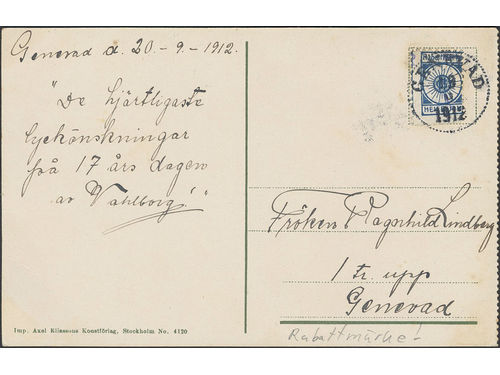 Genevad d. 20-9-1912.
"De hjärtligaste
lyckönskningar
på 17 års dagen
av Valborg!"
GENEVAD
1912
Fröken Ragnhild Lindberg
1 tr. upp
Genevad
Imp. Axel Eliassons Konstförlag, Stockholm No. 4120
Rabattmärke!